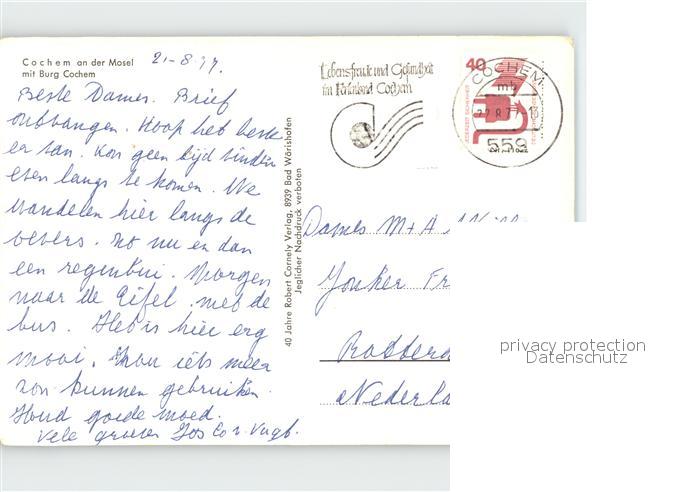 Cochem an der Mosel
mit Burg Cochem
21-8.77.
Beste Dames. Brief
ontvangen. Hoop het beste
er van. Kon geen tijd vinden
even langs te komen. We
wandelen hier langs de
oevers. zo nu en dan
een regenbui. Morgen
naar de Eifel met de
bus. Het is hier erg
mooi. Zou iets meer
zon kunnen gebruiken.
Houd goede moed.
Vele groeten Jos
40 Jahre Robert Cornely Verlag, 8939 Bad Wörishofen
Jeglicher Nachdruck verboten
Lebensfreude und Gesundheit
im Ferienland Cochem
40
COCHEM
mb
559
JEDERZEIT SICHERHEIT
Dames M + A
Jonker Fr
Rotterda
Nederla
privacy protection
Datenschutz